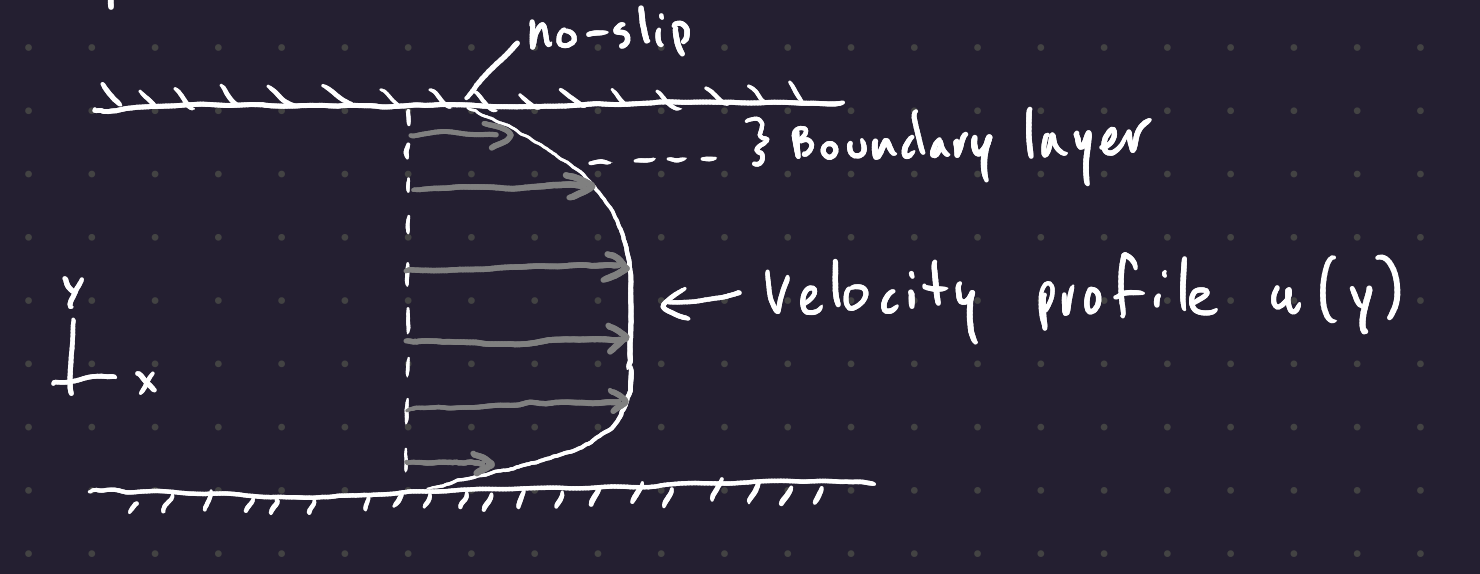 no-slip
} Boundary layer
Velocity profile u(y)
y
x